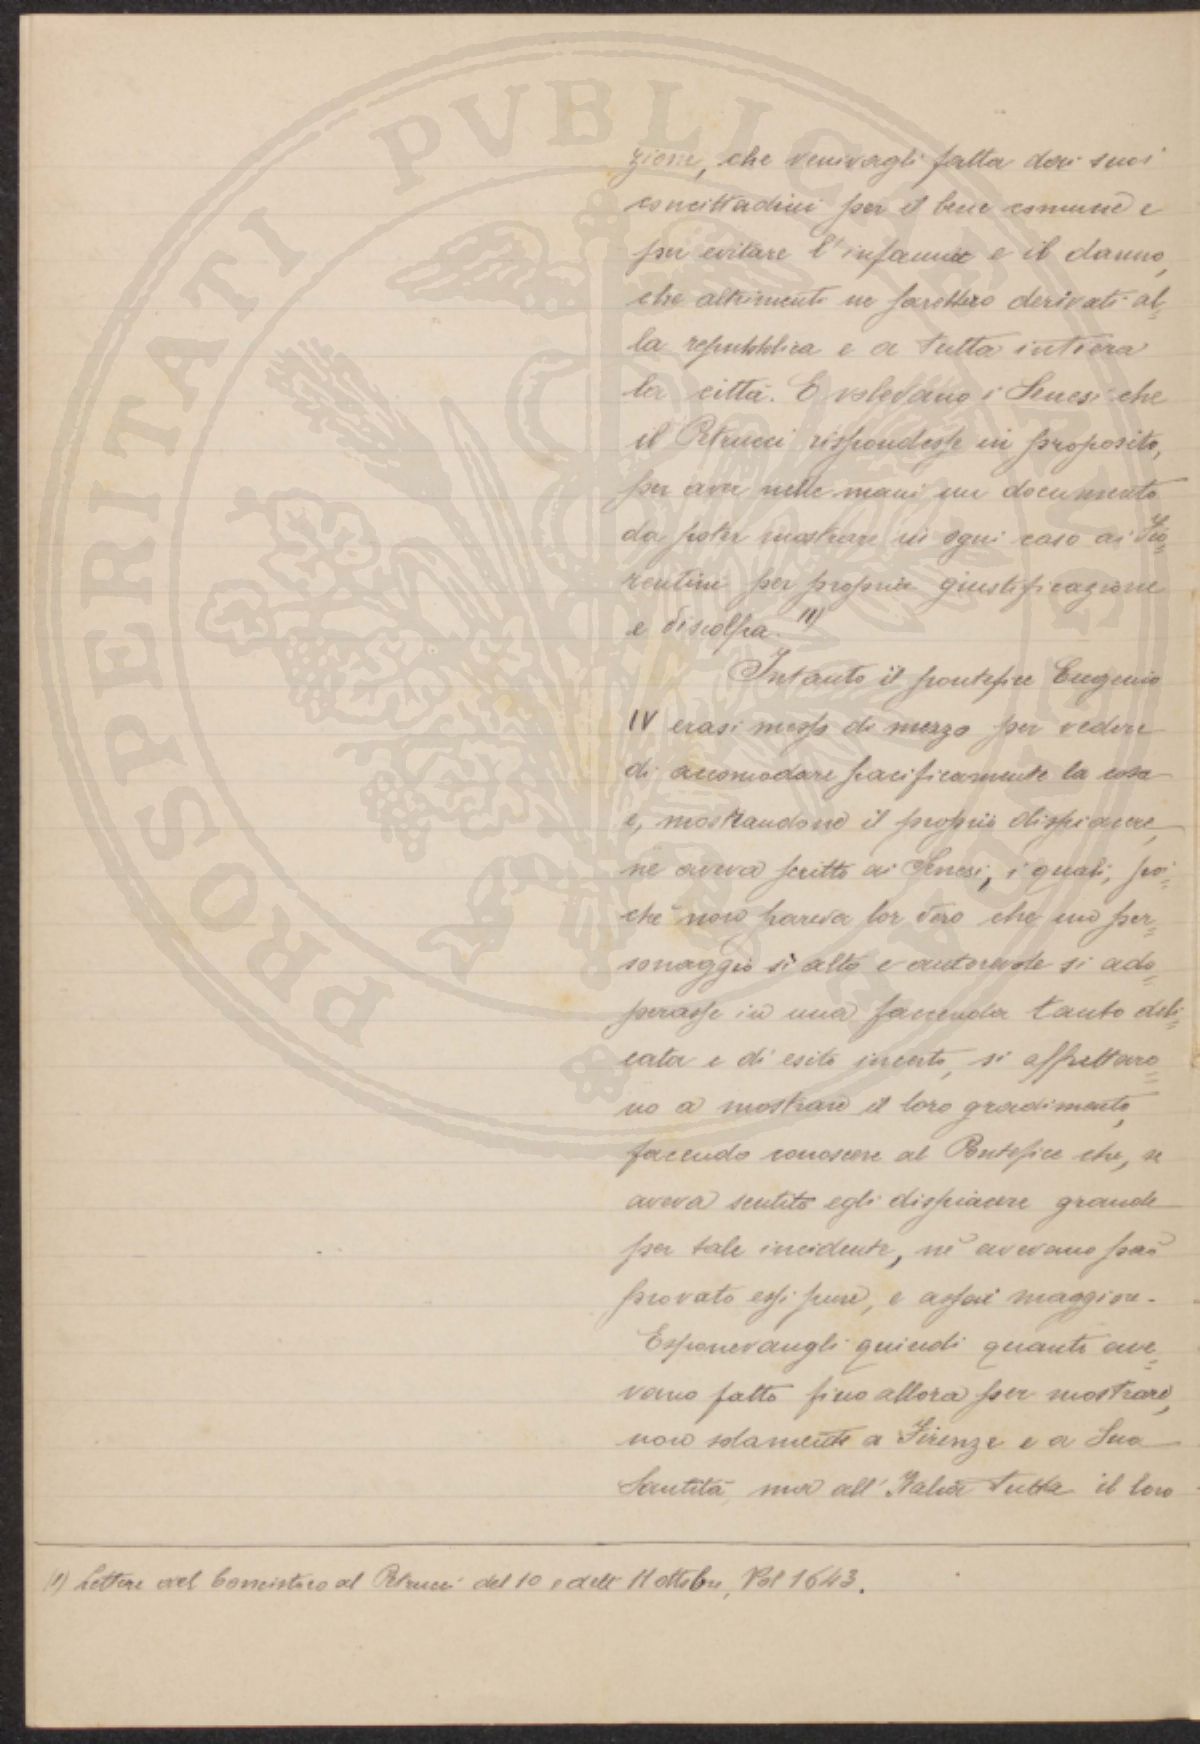 PROSPERITATI PVBLICAE
zione, che venivagli fatta dai suoi
concittadini per il bene comune e
per evitare l'infamia e il danno,
che altrimenti ne sarebbero derivati al=
la repubblica e a tutta intiera
la città. E volevano i Senesi che
il Petrucci rispondesse in proposito,
per aver nelle mani un documento
da poter mostrare in ogni caso ai Fio=
rentini per propria giustificazione
e discolpa. (1)
Intanto il pontefice Eugenio
IV erasi messo di mezzo per vedere
di accomodare pacificamente la cosa
e, mostrandone il proprio dispiacere,
ne aveva scritto ai Senesi, i quali, poi=
chè non pareva lor vero che un per=
sonaggio sì alto e autorevole si ado=
perasse in una faccenda tanto deli=
cata e di esito incerto, si affrettaro=
no a mostrare il loro gradimento,
facendo conoscere al Pontefice che, se
aveva sentito egli dispiacere grande
per tale incidente, ne avevano però
provato essi pure, e assai maggiore.
Esponevangli quindi quanto ave=
vano fatto fino allora per mostrare,
non solamente a Firenze e a Sua
Santità, ma all'Italia tutta il loro
(1) Lettere del Concistoro al Petrucci del 10 e dell' 11 ottobre, Pol 1643.